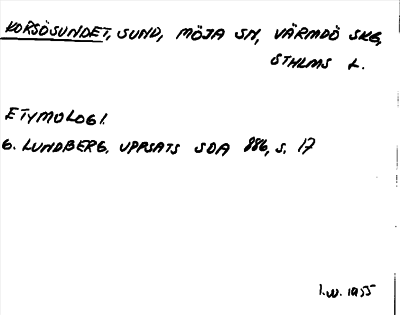 KORSÖSUNDET, SUND, MÖJA SN, VÄRMDÖ SKG,
STHLMS L.
ETYMOLOGI.
G. LUNDBERG, UPPSATS SOA 886, S. 17
I.W. 1955